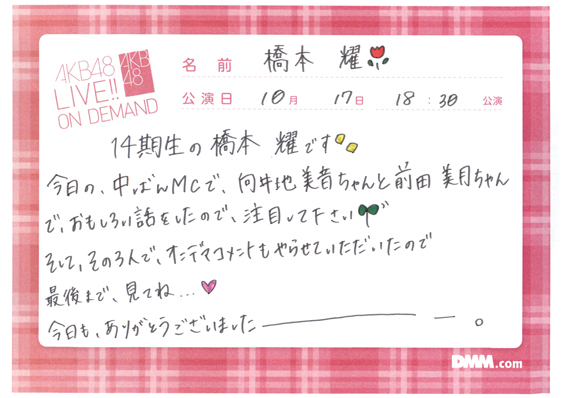 AKB48
LIVE!!
ON DEMAND
AKB
48
名 前 橋本 耀
公演日 10月 17日 18:30 公演
14期生の橋本 耀です
今日の、中ばんMCで、向井地美音ちゃんと前田美月ちゃん
で、おもしろい話をしたので、注目して下さい
そして、その3人で、オンデマコメントもやらせていただいたので
最後まで、見てね...
今日も、ありがとうございました ーーー。
DMM.com